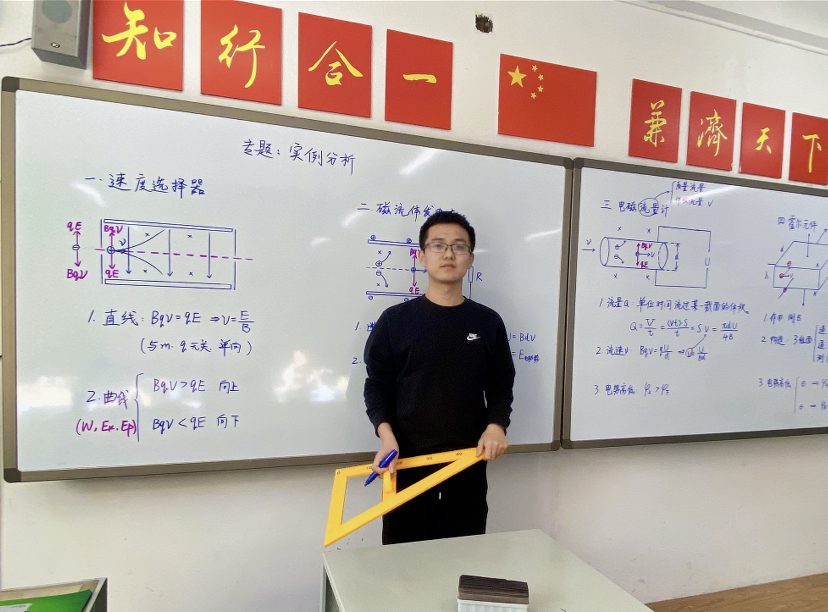 知行合一
兼濟天下
专题：实例分析
一.速度选择器
qE
BqV
BqV
qE
v
1. 直线：BqV=qE ⇒ V=E/B
(与m.q无关 单向)
2. 曲线
BqV>qE 向上
BqV<qE 向下
(W, Ek, Ep)
二.磁流体发
R
1.
2.
= BdV
三.电磁流量计
质量流量
流量 V
V
BqV
qE
U
1. 流量Q：单位时间流过某一截面的体积.
Q=V/t=(vt)·S/t=SV=πdU/4B
2. 流速V BqV=qU/d ⇒ V=U/Bd
3. 电势高低
四.霍尔元件
h
I
1.
2. 构造
3. 电势高低